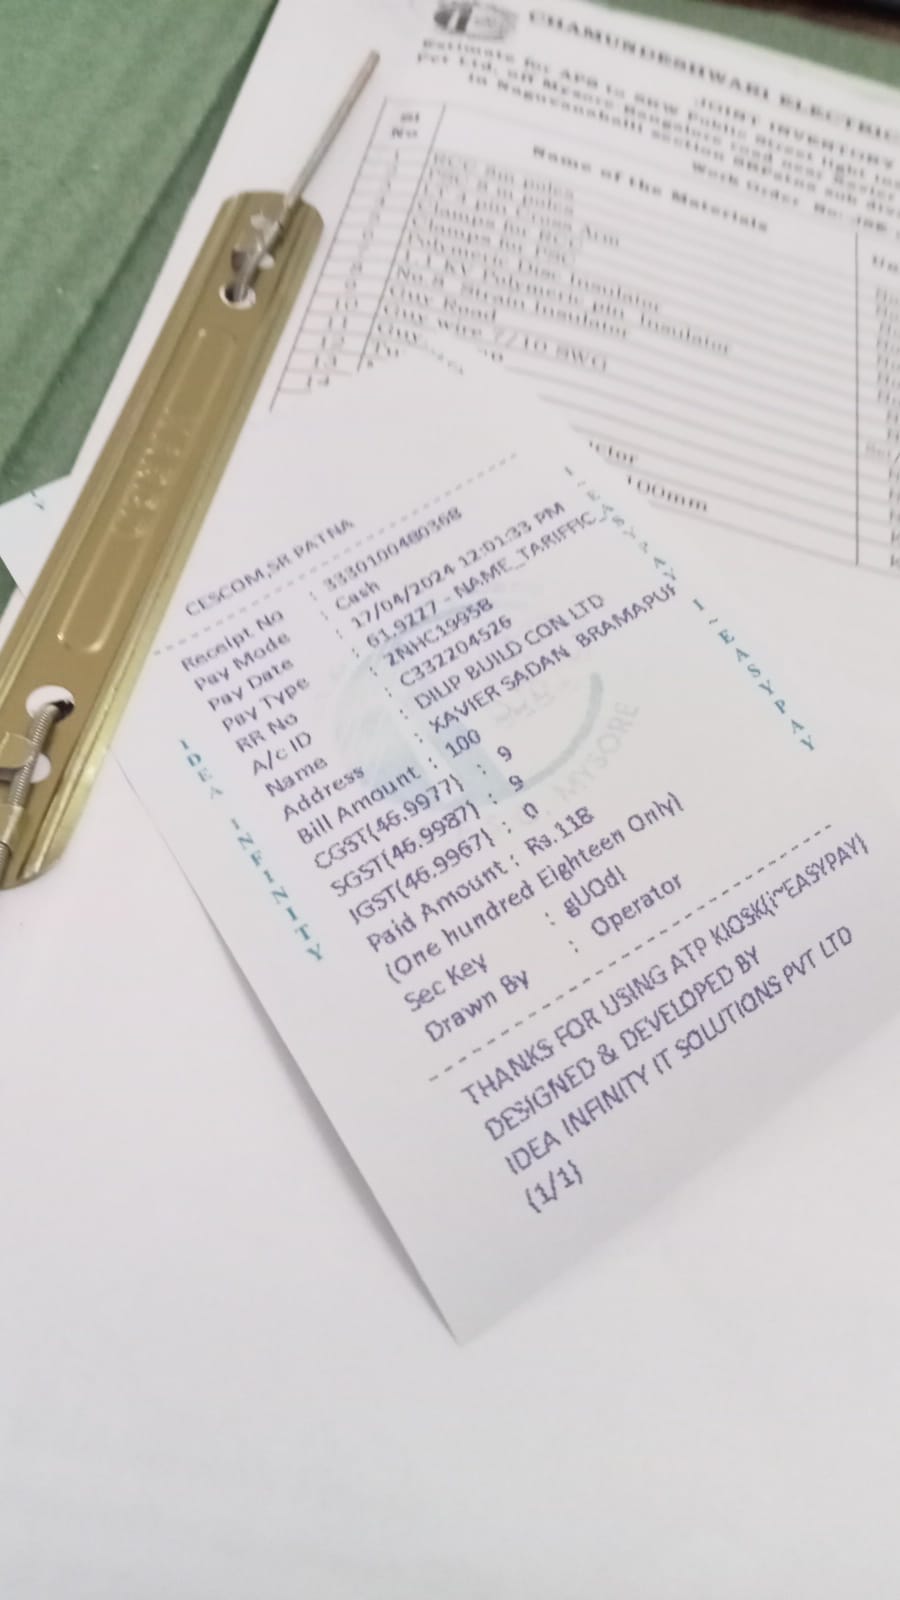 CHAMUNDESHWARI ELECTRIC
JOINT INVENTORY
Estimate for APS to SRW Public Street light
Pvt Ltd, off Mysore Bangalore road near Xavier
in Naguvanahalli section SRPatna sub div
Work Order No:
Sl
No
Name of the Materials
RCC 8m poles
Clamps for RCC
Clamps for PSC
Polymeric Disc Insulator
11 KV Polymeric pin Insulator
No.8, Strain Insulator
Guy Road
Guy wire 7/10 SWG
100mm
CESCOM,SR PATNA
Receipt No : 3330100480368
Pay Mode : Cash
Pay Date : 17/04/2024 12:01:33 PM
Pay Type : 61.9227 - NAME_TARIFFIC_
RR No : 2NHC19958
A/c ID : C332204526
Name : DILIP BUILD CON LTD
Address : XAVIER SADAN BRAMAPUR
Bill Amount : 100
CGST{46.9977} : 9
SGST{46.9987} : 9
IGST{46.9967} : 0
Paid Amount : Rs.118
(One hundred Eighteen Only)
Sec Key : gUOdI
Drawn By : Operator
THANKS FOR USING ATP KIOSK{i~EASYPAY}
DESIGNED & DEVELOPED BY
IDEA INFINITY IT SOLUTIONS PVT LTD
{1/1}
IDEA INFINITY
I~EASYPAY
I~EASYPAY
MYSORE